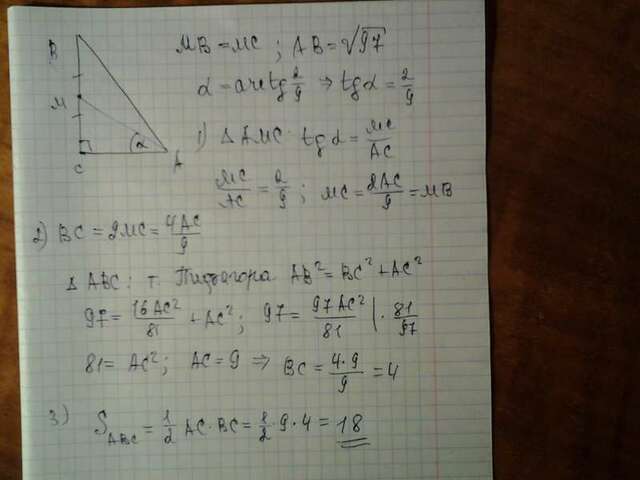 B
M
C
A
α
MB = MC ; AB = √97
α = arctg 2/9 ⇒ tgα = 2/9
1) Δ AMC tgα = MC/AC
MC/AC = 2/9 ; MC = 2AC/9 = MB
2) BC = 2MC = 4AC/9
Δ ABC : т. Пифагора AB² = BC² + AC²
97 = 16AC²/81 + AC² ; 97 = 97AC²/81 | · 81/97
81 = AC² ; AC = 9 ⇒ BC = 4·9/9 = 4
3) S_ABC = 1/2 AC · BC = 1/2 · 9 · 4 = 18